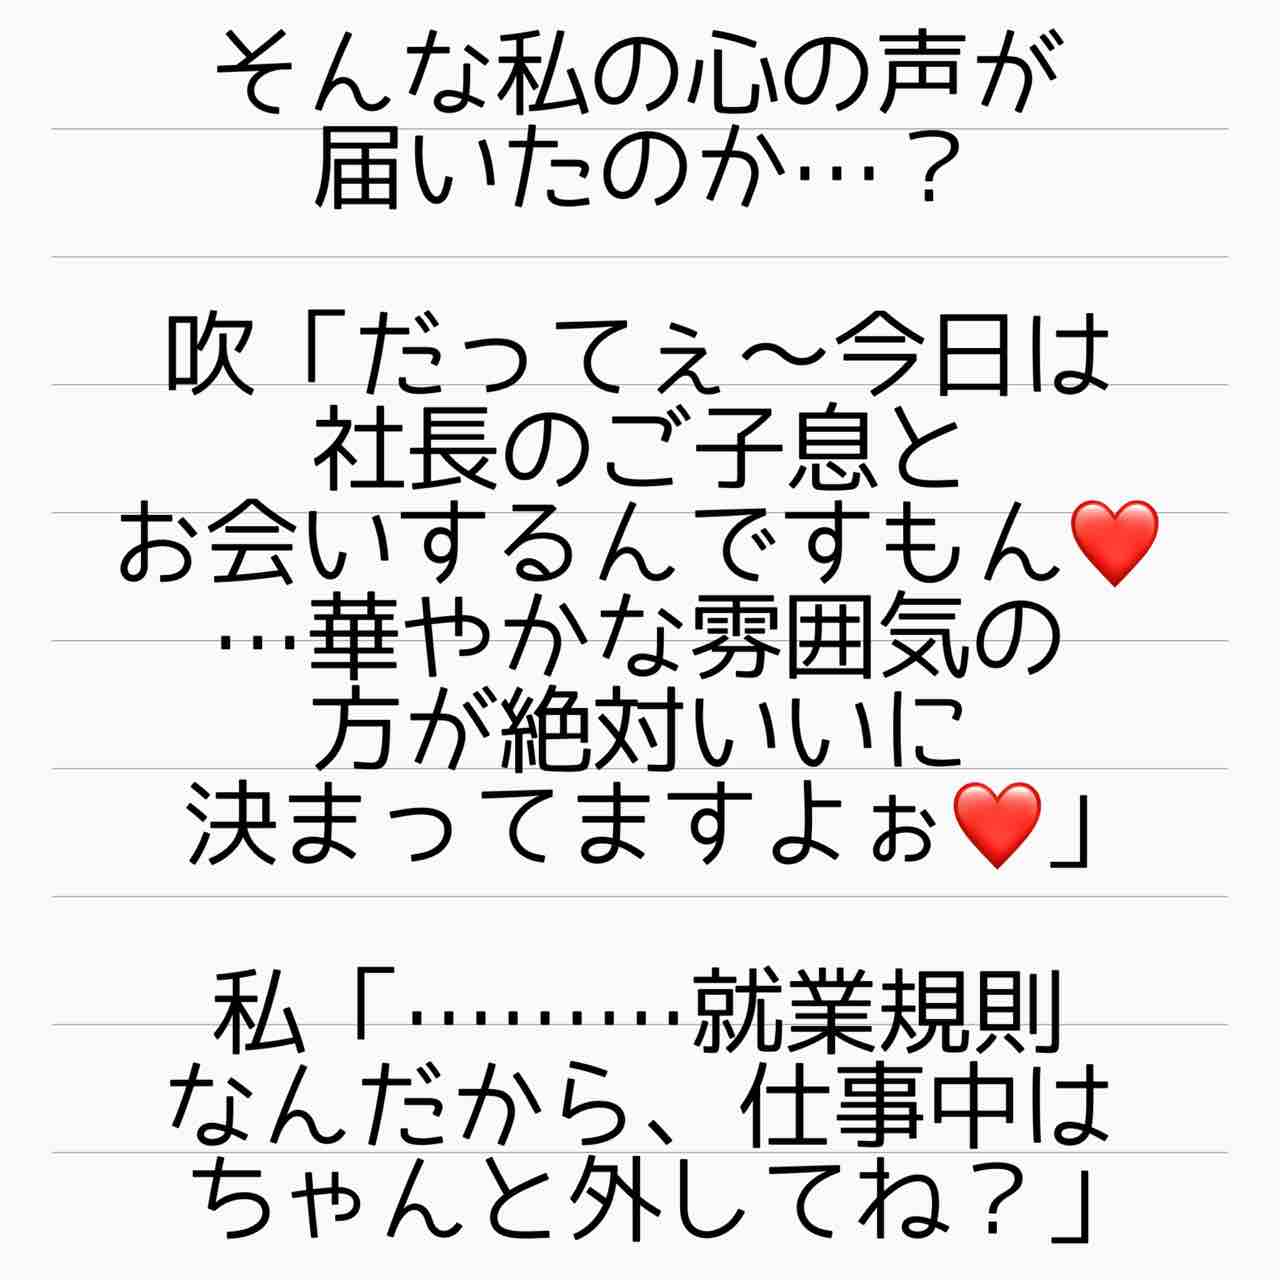 そんな私の心の声が
届いたのか…？
吹「だってぇ〜今日は
社長のご子息と
お会いするんですもん❤️
…華やかな雰囲気の
方が絶対いいに
決まってますよぉ❤️」
私「………就業規則
なんだから、仕事中は
ちゃんと外してね？」